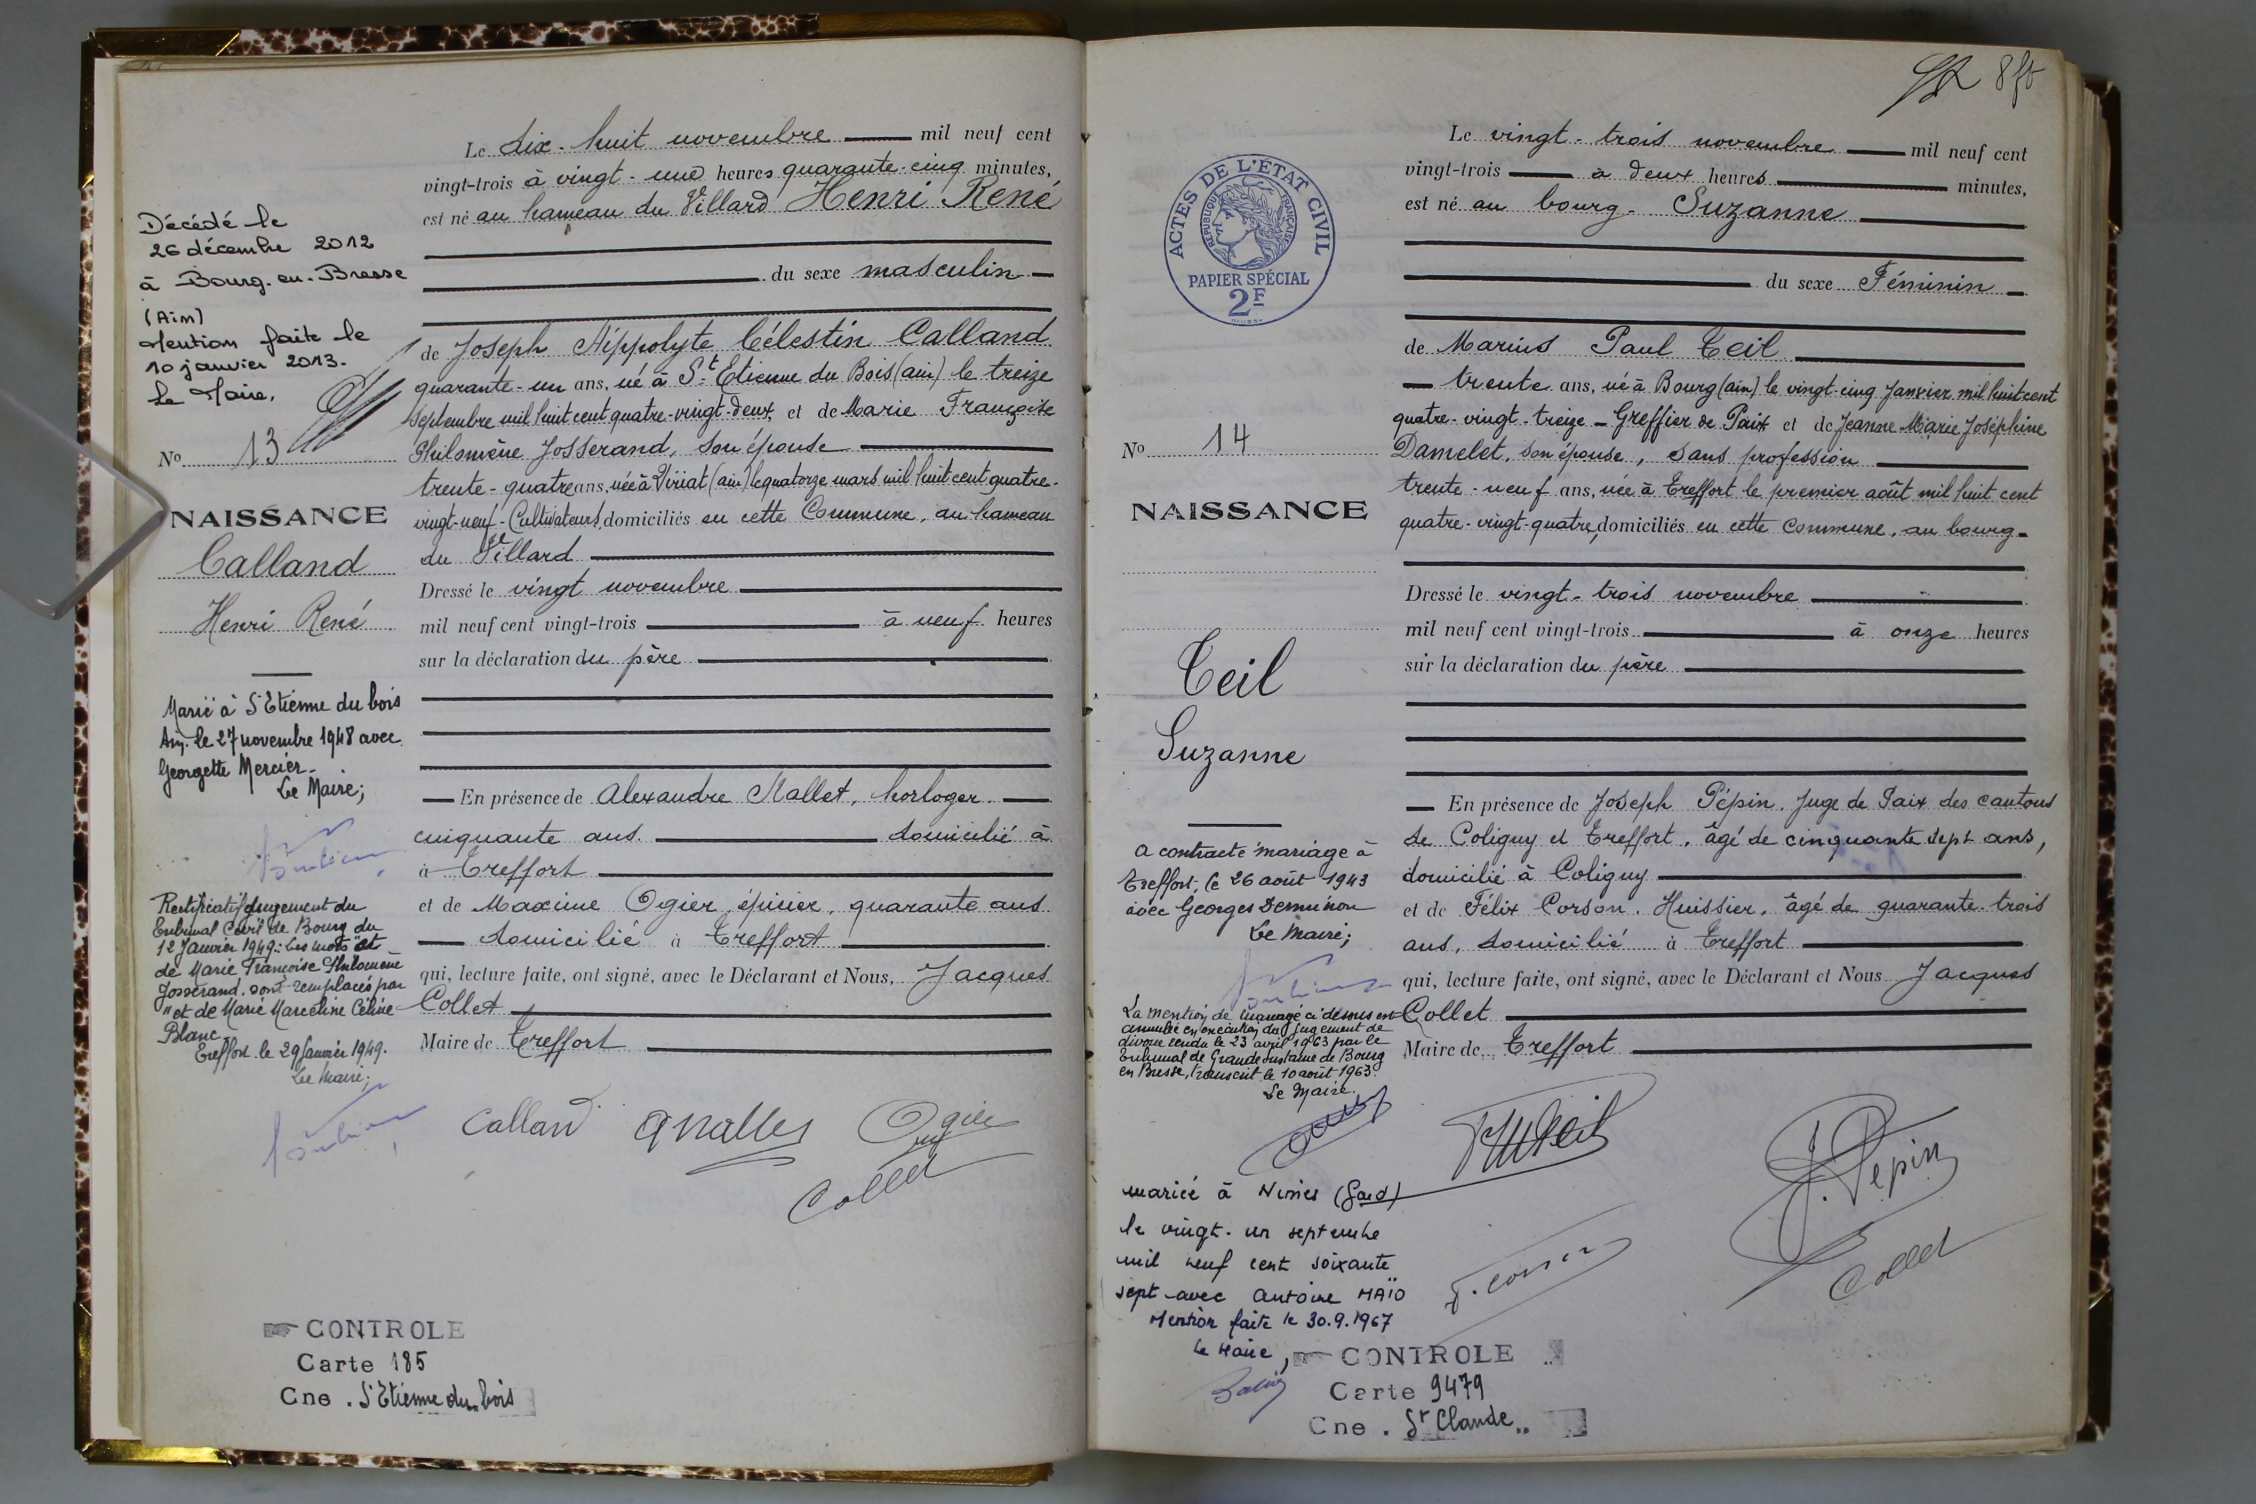 Le dix-huit novembre mil neuf cent
vingt-trois à vingt-une heures quarante-cinq minutes,
est né au hameau du Villard Henri René
du sexe masculin
de Joseph Hippolyte Célestin Calland
quarante-un ans, né à St Etienne du Bois (ain) le treize
septembre mil huit cent quatre-vingt-deux, et de Marie Françoise
Philomène Josserand, son épouse
trente-quatre ans, née à Viriat (ain) le quatorze mars mil huit cent quatre-
vingt-neuf - Cultivateurs, domiciliés en cette Commune, au hameau
du Villard
Dressé le vingt novembre
mil neuf cent vingt-trois à neuf heures
sur la déclaration du père
En présence de Alexandre Mallet, horloger
cinquante ans. domicilié à
à Treffort
et de Maxime Ogier, épicier, quarante ans
domicilié à Treffort
qui, lecture faite, ont signé, avec le Déclarant et Nous, Jacques
Collet
Maire de Treffort
Calland
Ogier
Collet
Décédé le
26 décembre 2012
à Bourg-en-Bresse
(Ain)
Mention faite le
10 janvier 2013.
Le Maire,
No 13
NAISSANCE
Calland
Henri René
Marié à St Etienne du bois
Ain. le 27 novembre 1948 avec
Georgette Mercier_
Le Maire;
Rectificatif Jugement du
Tribunal Civil de Bourg du
12 Janvier 1949: Les mots "et
de Marie Françoise Philomène
Josserand. sont remplacés par
"et de Marie Marceline Céline
Blanc.
Treffort le 29 Janvier 1949.
Le Maire;
CONTROLE
Carte 185
Cne . St Etienne du bois
8 ft
Le vingt-trois novembre mil neuf cent
vingt-trois à deux heures minutes,
est né au bourg - Suzanne
du sexe Féminin
de Marius Paul Teil
trente ans, né à Bourg (ain) le vingt-cinq Janvier mil huit cent
quatre-vingt-treize - Greffier de Paix et de Jeanne Marie Joséphine
Damelet, son épouse, sans profession
trente-neuf ans, née à Treffort le premier août mil huit cent
quatre-vingt-quatre, domiciliés en cette commune, au bourg-
Dressé le vingt-trois novembre
mil neuf cent vingt-trois à onze heures
sur la déclaration du père
En présence de Joseph Pépin, Juge de Paix des cantons
de Coligny et Treffort, âgé de cinquante sept ans,
domicilié à Coligny
et de Félix Corson, Huissier, âgé de quarante-trois
ans, domicilié à Treffort
qui, lecture faite, ont signé, avec le Déclarant et Nous Jacques
Collet
Maire de Treffort
J. Pepin
Collet
ACTES DE L'ÉTAT CIVIL
RÉPUBLIQUE FRANÇAISE
PAPIER SPÉCIAL
2F
No 14
NAISSANCE
Teil
Suzanne
a contracté mariage à
Treffort, le 26 août 1943
avec Georges
Le Maire;
La mention de mariage ci-dessus est
annulée en exécution du Jugement de
divorce rendu le 23 avril 1963 par le
Tribunal de Grande Instance de Bourg
en Bresse, transcrit le 10 août 1963.
Le Maire.
mariée à Nimes (Gard)
le vingt-un septembre
mil neuf cent soixante
sept avec Antoine MAÏO
Mention faite le 30.9.1967
Le Maire,
CONTROLE
Carte 9479
Cne . St Claude